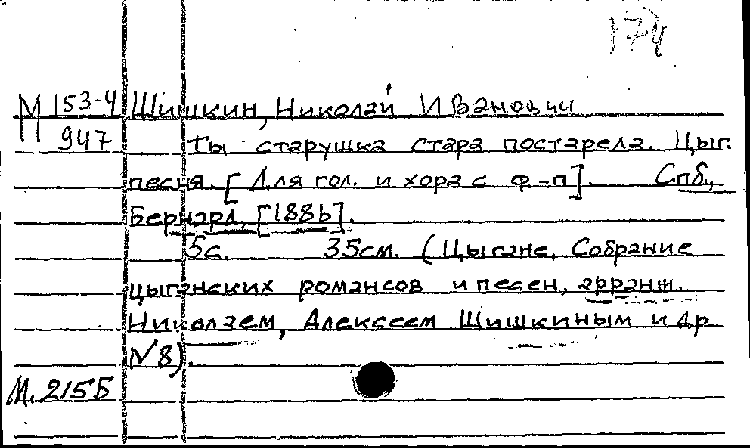 174
М 153-4 Шишкин, Николай Иванович
947 Ты старушка стара постарела. Цыг.
песня. [Для гол. и хора с ф-п]. Спб.,
Бернард, [1886].
5с. 35см. (Цыгане. Собрание
цыганских романсов и песен, арранж.
Николаем, Алексеем Шишкиным и др.
N8)
М. 215Б